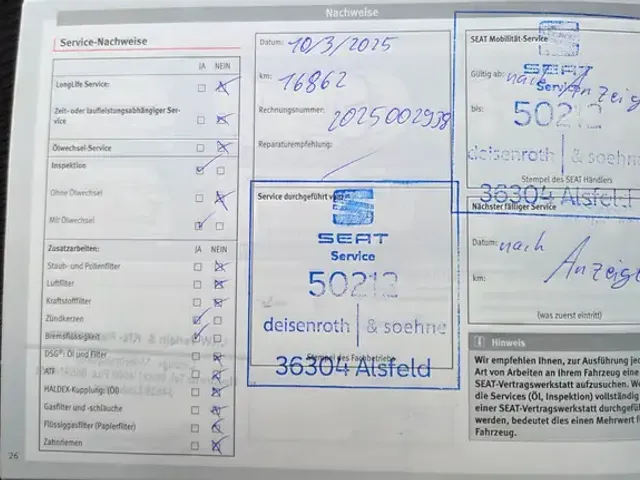 Nachweise
Service-Nachweise
JA NEIN
LongLife Service:
Zeit- oder laufleistungsabhängiger Ser-
vice
Ölwechsel-Service
Inspektion
Ohne Ölwechsel
Mit Ölwechsel
Zusatzarbeiten: JA NEIN
Staub- und Pollenfilter
Luftfilter
Kraftstofffilter
Zündkerzen
Bremsflüssigkeit
DSG®: Öl und Filter
ATF
HALDEX-Kupplung: (Öl)
Gasfilter und -schläuche
Flüssiggasfilter (Papierfilter)
Zahnriemen
26
Datum: 10/3/2025
km: 16862
Rechnungsnummer:
2025002938
Reparaturempfehlung:
Service durchgeführt von:
SEAT
Service
50213
deisenroth & soehne
Stempel des Fachbetriebs
36304 Alsfeld
SEAT Mobilität-Service
SEAT
Gültig ab: nach Anzeige
Service
bis:
deisenroth & soehne
Stempel des SEAT Händlers
36304 Alsfeld
Nächster fälliger Service
Datum: nach
km: Anzeige
(was zuerst eintritt)
i Hinweis
Wir empfehlen Ihnen, zur Ausführung je
Art von Arbeiten an Ihrem Fahrzeug eine
SEAT-Vertragswerkstatt aufzusuchen. We
die Services (Öl, Inspektion) vollständig
einer SEAT-Vertragswerkstatt durchgefüh
werden, bedeutet dies einen Mehrwert f
Fahrzeug.